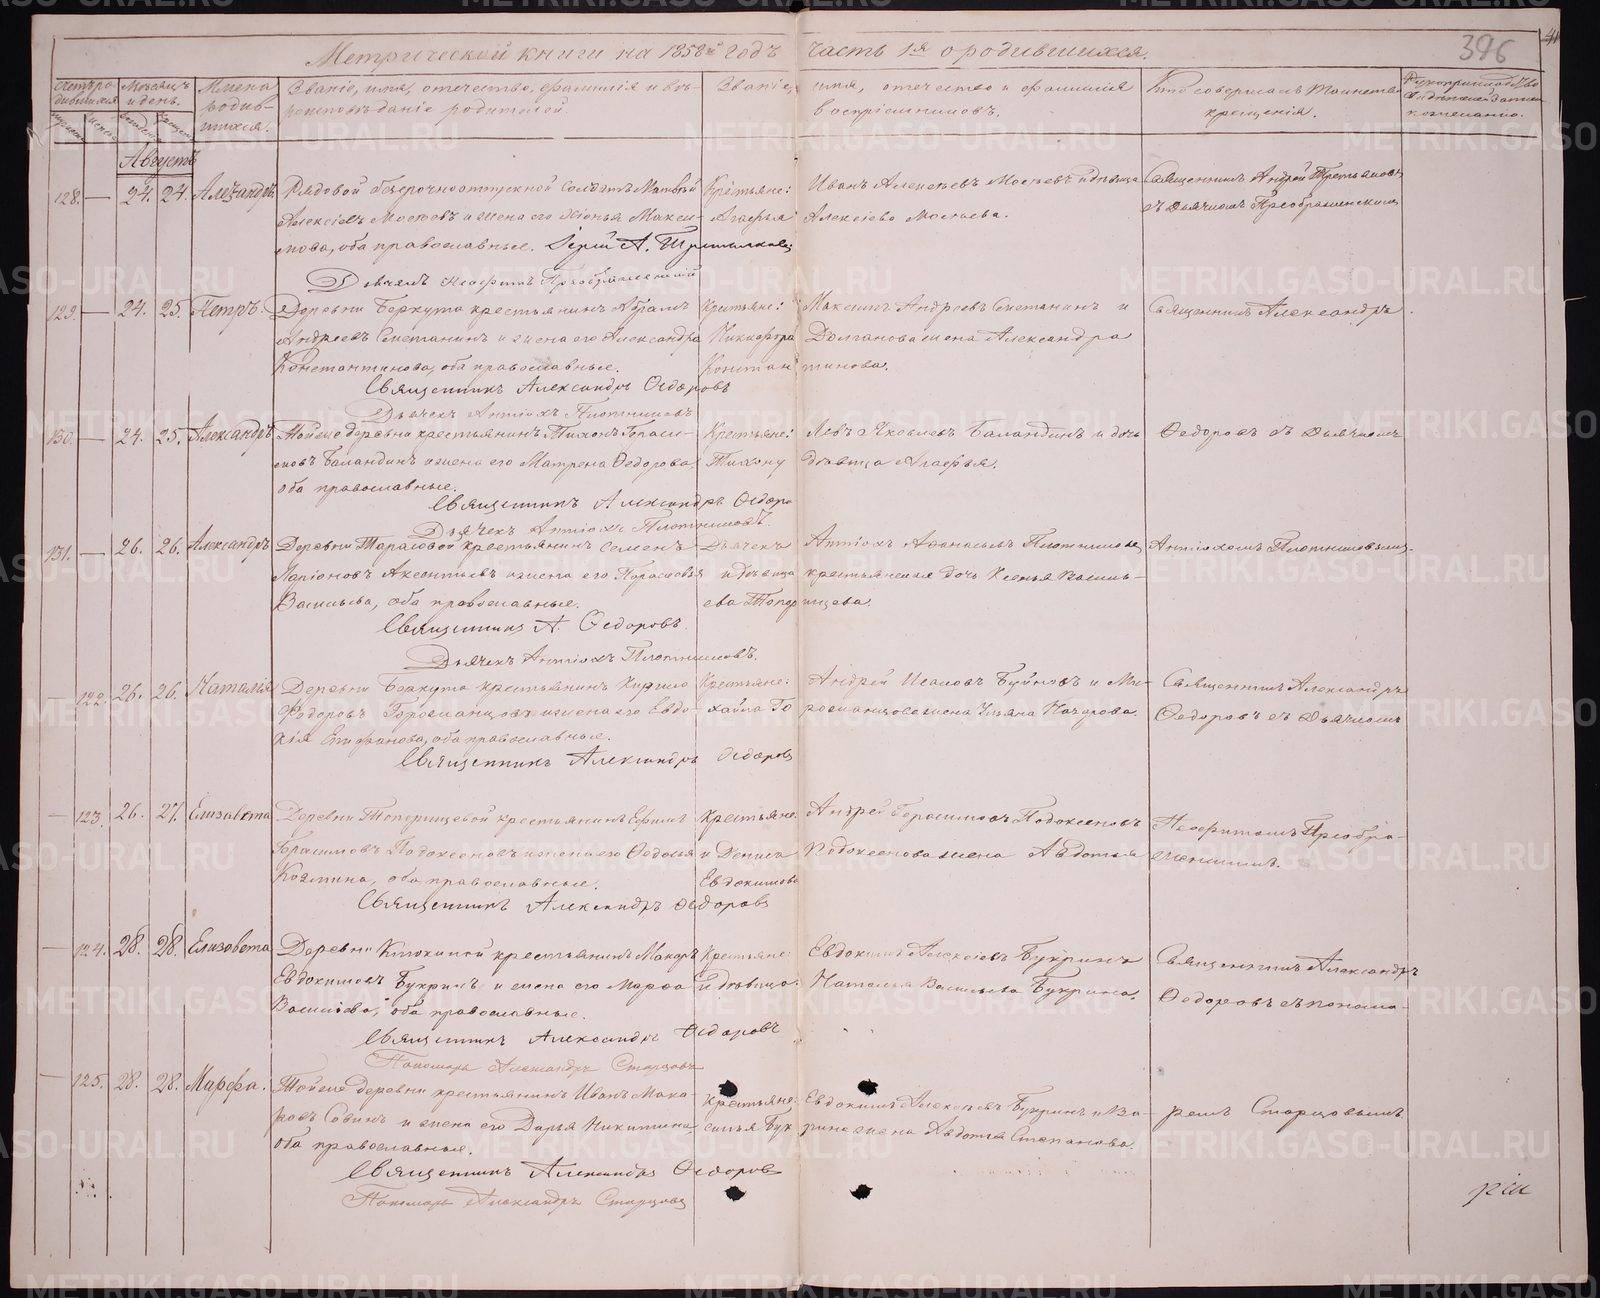 Метрической книги на 1858й годъ часть 1я о родившихся.
396
Счетъ родившихся
Мѣсяцъ и день.
Имена родившихся.
Званіе, имя, отечество, фамилія и вѣроисповѣданіе родителей
Званіе, имя, отечество и фамилія воспріемниковъ.
Кто совершалъ таинство крещенія.
Августъ
128. — 24. 24. Александръ.
Рядовой безсрочноотпускной солдатъ Матвѣй
Алексѣевъ и жена его Хіонья Макси-
мова, оба православные. Іерей А. Третьяковъ
Дьячекъ Неофитъ Преображенскій
Крестьяне: Иванъ Алексѣевъ и дѣвица
Агафья Алексѣева
Священникъ Андрей Третьяковъ
съ Дьячкомъ Преображенскимъ
129. — 24. 25. Петръ.
Деревни Беркута крестьянинъ Абрамъ
Андреевъ Сметанинъ и жена его Александра
Константинова, оба православные.
Священникъ Александръ Ѳедоровъ
Дьячекъ Антіохъ Плотниковъ
Крестьяне: Максимъ Андреевъ Сметанинъ и
Никифора Долганова жена Александра
Константинова.
Священникъ Александръ
130. — 24. 25. Александръ
Тойже деревни крестьянинъ Тихонъ Гераси-
мовъ Баландинъ и жена его Матрена Ѳедорова
оба православные.
Священникъ Александръ Ѳедоро
Дьячекъ Антіохъ Плотниковъ.
Крестьяне: Левъ Яковлевъ Баландинъ и дочь
дѣвица Агафья.
Ѳедоровъ съ Дьячкомъ
131. — 26. 26. Александръ
Деревни Тарасовой крестьянинъ Семенъ
Ларіоновъ Аксентьевъ и жена его Парасковья
Васильева, оба православные.
Священникъ А. Ѳедоровъ.
Дьячекъ Антіохъ Плотниковъ.
Дьячекъ Антіохъ Афанасьевъ Плотниковъ
и дѣвица крестьянская дочь Ксенья Василь-
ева Топорищева.
Антіохомъ Плотниковымъ.
— 122. 26. 26. Наталія
Деревни Беркута крестьянинъ Кирило
Ѳедоровъ Горожанцовъ и жена его Евдо-
кія Епифанова, оба православные.
Священникъ Александръ Ѳедоровъ
Крестьяне: Андрей Исаковъ Буйновъ и Ми-
хайла Горожанцова жена Ульяна Назарова.
Священникъ Александръ
Ѳедоровъ съ Дьячкомъ
— 123. 26. 27. Елизавета
Деревни Топорищевой крестьянинъ Ефимъ
Герасимовъ Подоксеновъ и жена его Ѳедосья
Козмина, оба православные.
Священникъ Александръ Ѳедоровъ
Крестьяне: Андрей Герасимовъ Подоксеновъ
и Дениса Подоксенова жена Авдотья
Евдокимова
Неофитомъ Преобра-
женскимъ.
— 124. 28. 28. Елизовета
Деревни Клюкиной крестьянинъ Макаръ
Евдокимовъ Букринъ и жена его Марфа
Василіева, оба православные.
Священникъ Александръ Ѳедоровъ
Пономарь Александръ Старцовъ
Крестьяне: Евдокимъ Алексіевъ Букринъ
и дѣвица Наталья Васильева Букрина.
Священникъ Александръ
Ѳедоровъ съ понома-
— 125. 28. 28. Марфа.
Тойже деревни крестьянинъ Иванъ Мака-
ровъ Совинъ и жена его Дарья Никитина,
оба православные.
Священникъ Александръ Ѳедоровъ
Пономарь Александръ Старцовъ
Крестьяне: Евдокимъ Алексѣевъ Букринъ и Ва-
силья Букрина жена Авдотья Степанова.
ремъ Старцовымъ
METRIKI.GASO-URAL.RU